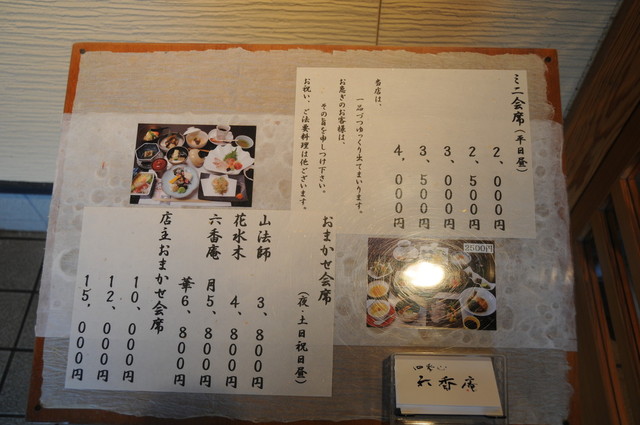 ミニ会席（平日昼）
２，０００円
２，５００円
３，０００円
３，５００円
４，０００円
当店は、
一品づつゆっくり出てまいります。
お急ぎのお客様は、
その旨を申しつけ下さい。
お祝い、ご法要料理は他ございます。
おまかせ会席
（夜・土日祝日昼）
山法師 ３，８００円
花水木 ４，８００円
六香庵 月５，８００円
華６，８００円
店主おまかせ会席
１０，０００円
１２，０００円
１５，０００円
2500円
六香庵